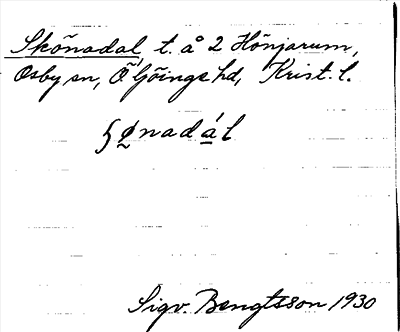 Skönadal t. å 2 Hönjarum,
Osby sn, Ö Göinge hd, Krist. l.
ʃø̰nadál
Sigv. Bengtsson 1930